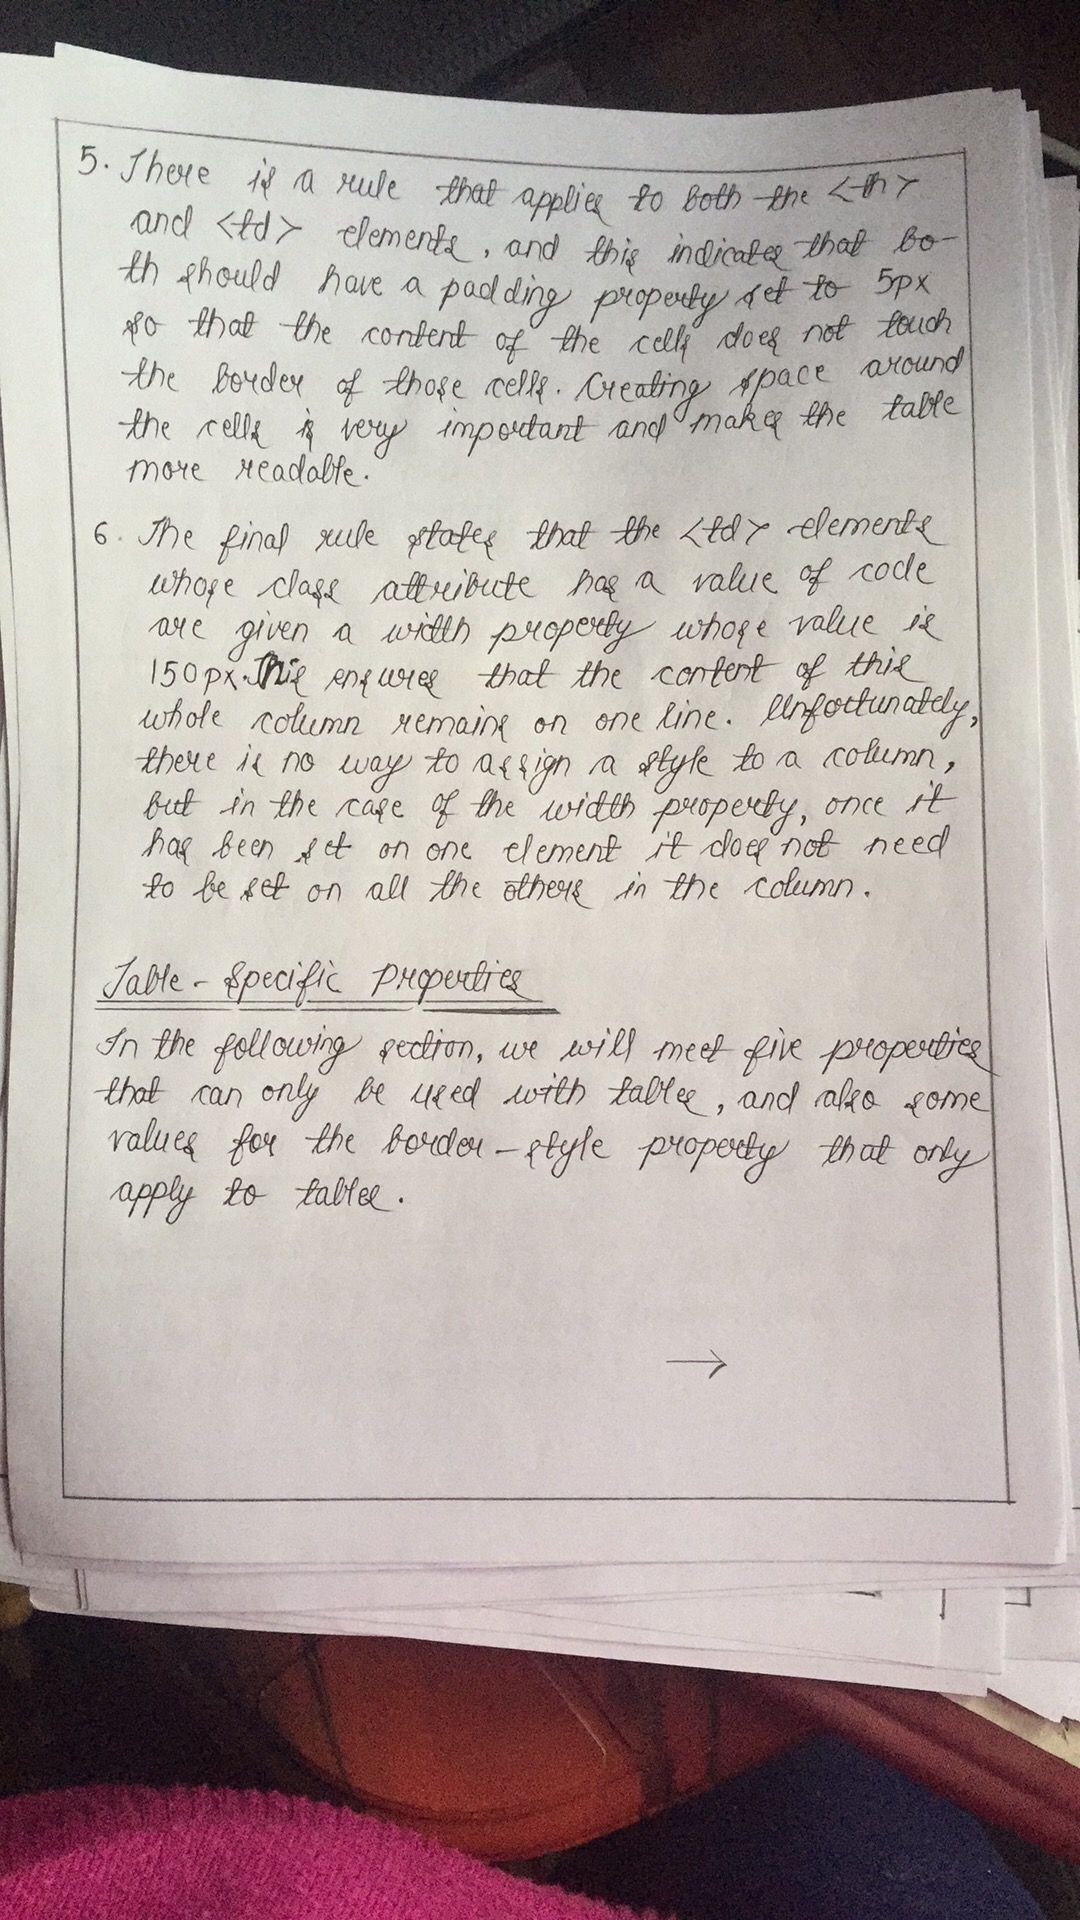 5. There is a rule that applies to both the <th>
and <td> elements, and this indicates that bo-
th should have a padding property set to 5px
so that the content of the cells does not touch
the border of those cells. Creating space around
the cells is very important and makes the table
more readable.
6. The final rule states that the <td> elements
whose class attribute has a value of code
are given a width property whose value is
150px. This ensures that the content of this
whole column remains on one line. Unfortunately,
there is no way to assign a style to a column,
but in the case of the width property, once it
has been set on one element it does not need
to be set on all the others in the column.
Table - Specific Properties
In the following section, we will meet five properties
that can only be used with tables, and also some
values for the border-style property that only
apply to tables.
→